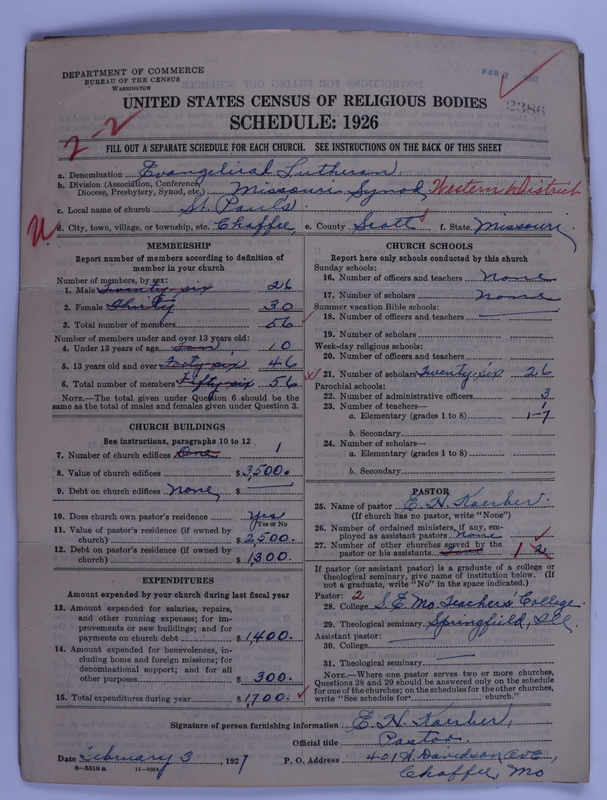 DEPARTMENT OF COMMERCE
BUREAU OF THE CENSUS
WASHINGTON
2386
UNITED STATES CENSUS OF RELIGIOUS BODIES
SCHEDULE: 1926
2-2
FILL OUT A SEPARATE SCHEDULE FOR EACH CHURCH. SEE INSTRUCTIONS ON THE BACK OF THIS SHEET
a. Denomination Evangelical Lutheran
b. Division (Association, Conference, Diocese, Presbytery, Synod, etc.) Missouri Synod, Western District
c. Local name of church St. Paul's
d. City, town, village, or township, etc. Chaffee e. County Scott f. State Missouri
MEMBERSHIP
Report number of members according to definition of
member in your church
Number of members, by sex:
1. Male Twenty-six 26
2. Female Thirty 30
3. Total number of members 56
Number of members under and over 13 years old:
4. Under 13 years of age Ten 10
5. 13 years old and over Forty six 46
6. Total number of members Fifty-six 56
NOTE.—The total given under Question 6 should be the
same as the total of males and females given under Question 3.
CHURCH BUILDINGS
See instructions, paragraphs 10 to 12
7. Number of church edifices One 1
8. Value of church edifices $3,500.
9. Debt on church edifices None $
10. Does church own pastor's residence Yes
(Yes or No)
11. Value of pastor's residence (if owned by
church) $2,500.
12. Debt on pastor's residence (if owned by
church) $1,300.
EXPENDITURES
Amount expended by your church during last fiscal year
13. Amount expended for salaries, repairs,
and other running expenses; for im-
provements or new buildings; and for
payments on church debt $1,400.
14. Amount expended for benevolences, in-
cluding home and foreign missions; for
denominational support; and for all
other purposes $300.
15. Total expenditures during year $1,700.
CHURCH SCHOOLS
Report here only schools conducted by this church
Sunday schools:
16. Number of officers and teachers None
17. Number of scholars None
Summer vacation Bible schools:
18. Number of officers and teachers
19. Number of scholars
Week-day religious schools:
20. Number of officers and teachers
21. Number of scholars Twenty-six 26
Parochial schools:
22. Number of administrative officers 3
23. Number of teachers—
a. Elementary (grades 1 to 8) 1-7
b. Secondary
24. Number of scholars—
a. Elementary (grades 1 to 8)
b. Secondary
PASTOR
25. Name of pastor E. H. Koerber.
(If church has no pastor, write "None")
26. Number of ordained ministers, if any, em-
ployed as assistant pastors None
27. Number of other churches served by the
pastor or his assistants 1 2
If pastor (or assistant pastor) is a graduate of a college or
theological seminary, give name of institution below. (If
not a graduate, write "No" in the space indicated.)
Pastor: 2
28. College S. E. Mo. Teachers' College.
29. Theological seminary Springfield, Ill.
Assistant pastor:
30. College
31. Theological seminary
NOTE.—Where one pastor serves two or more churches,
Questions 28 and 29 should be answered only on the schedule
for one of the churches; on the schedules for the other churches,
write "See schedule for church."
Signature of person furnishing information E. H. Koerber,
Official title Pastor.
Date February 3, 1927 P. O. Address 401 N. Davidson Ave.,
Chaffee, Mo
8-5518 a